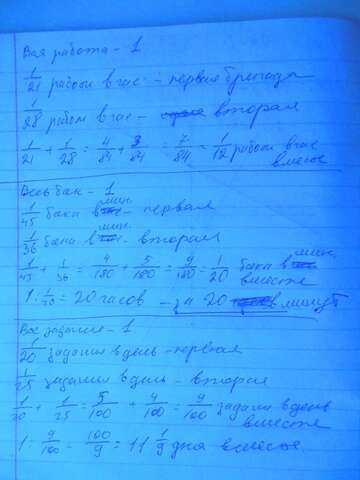 Вся работа - 1
1/21 работы в час - первая бригада
1/28 работы в час - вторая
1/21 + 1/28 = 4/84 + 3/84 = 7/84 = 1/12 работы в час
вместе
Весь бак - 1
1/45 бака в мин. - первая
1/36 бака в - вторая
1/45 + 1/36 = 4/180 + 5/180 = 9/180 = 1/20 бака в мин.
вместе
1 : 1/20 = 20 часов - за 20 минут
Все задание - 1
1/20 задания в день - первая
1/25 задания в день - вторая
1/20 + 1/25 = 5/100 + 4/100 = 9/100 задания в день
вместе
1 : 9/100 = 100/9 = 11 1/9 дня вместе.